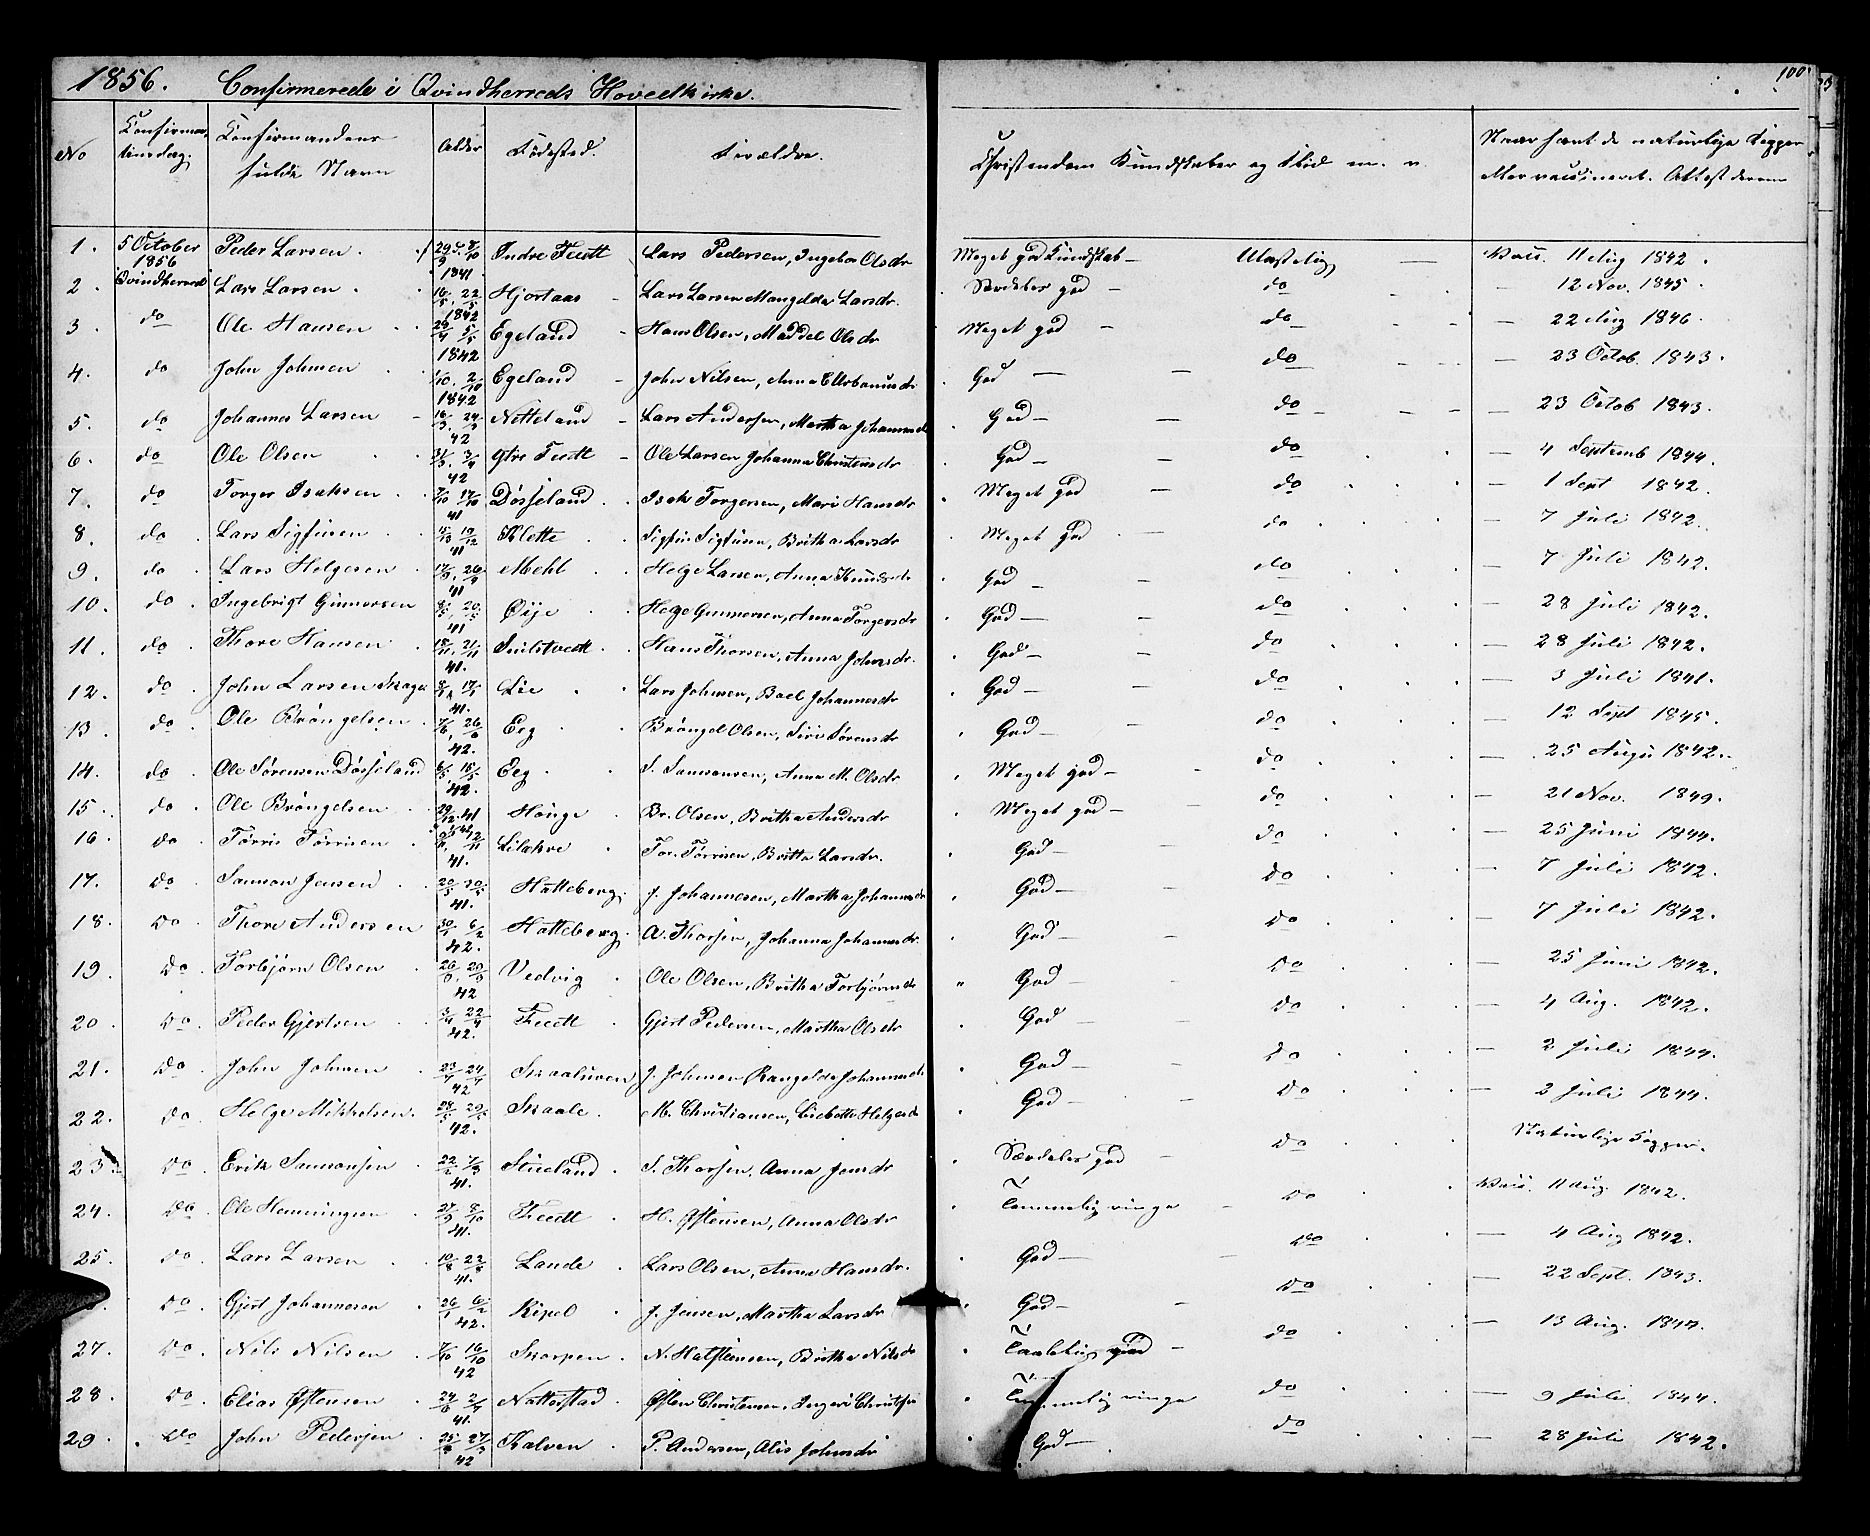 1856. Confirmerede i Qvindherreds Hovedkirke. 100
No Confirmationsdag. Konfirmandens fulde Navn Alder Fødested. Forældre. Christendoms Kundskaber og Flid m. v. Naar havt de naturlige Kopper eller vaccineret. Attest derom
1. 5 October 1856 Qvindherred Peder Larsen 1841 Indre Feedt Lars Pedersen, Ingebor Olsdr Meget god Kundskab – Ulastelig – Vacc. 11 Aug 1842.
2. Lars Larsen 16/5 22/5 1842 Hjortaas – Lars Larsen Mangelda Larsdr. Særdeles god – do – 12 Nov. 1845.
3. do Ole Hansen 29/4 5/5 1842 Egeland – Hans Olsen, Maddel Olsdr Meget god – do – 22 Aug 1846.
4. do John Johnsen 1/10. 2/10 1842 Egeland – John Nilsen, Anna Urbanusdr God – do – 23 Octob. 1843.
5. do Johannes Larsen – 16/3. 24/3 42 Netteland – Lars Andersen, Martha Johannesd God – do – 23 Octob 1843.
6. do Ole Olsen 31/3. 3/4 42 Ytre Feedt – Ole Larsen Johanna Christensdr God – do – 4 Septemb 1844.
7. do Torger Isaksen 7/10 17/10 41 Døsseland Isak Torgersen, Mari Hansdr Meget god – do – 1 Sept 1842.
8. do Lars Sigfusen 41 Klette Sigfus Sigfusen, Britha Larsdr Meget god – do – 7 Juli 1842.
9. do Lars Helgesen 17/9. 26/9 41 Mehl Helge Larsen, Anna Knudsdr God – do – 7 Juli 1842.
10. do Ingebrigt Gunnarsen 20/5 41 Øije Helge Gunnarsen, Anna Torgersdr God – do – 28 Juli 1842.
11. do Thore Hansen 18/11. 21/11 41. Hans Thorsen, Anna Johnsdr. God – do – 28 Juli 1842.
12. do John Larsen 41. Lie Lars Johnsen, Boel Johannesdr God – do – 3 Juli 1841.
13. do Ole Brøngelsen 7/6. 26/6 42. Eeg Brøngel Olsen, Siri Sørensdr God – do – 12 Sept 1845.
14. do Ole Sørensen Døsseland 6/5 15/5 42. Eeg S. Samsonsen, Anna M. Olsdr Meget god – do – 25 Augu 1842.
15. do Ole Brøngelsen 29/12. 41 Houge Br. Olsen, Britha Andersdr Meget god – do – 21 Nov. 1849.
16. do Tørris Tørrisen 41. Lilakre Tor. Tørrisen, Britta Larsdr. God – do – 25 Juni 1844.
17. Do Samson Jensen 41. Hatteberg. J. Johannesen, Martha Johannesdr God – Do – 7 Juli 1842.
18. Do Thore Anderssen 30/1 6/2 42. Hatteberg. A. Thorsen, Johanna Johannesdr. God – Do – 7 Juli 1842.
19. Do Torbjørn Olsen 42 Vedvig Ole Olsen, Britha Torbjørnsdr God – Do – 25 Juni 1842.
20. Do Peder Gjertsen 3/4 22/4 42. Feedt Gjert Pedersen, Martha Olsdr God – Do – 4 Aug. 1842.
21. Do John Johnsen 23/4 24/4 42 Skaaluren J. Johnsen Rangelda Johannesdr God – Do – 2 Juli 1844.
22. Do Helge Mikkelsen. 42. Skaale. M. Christiansen, Lisbeth Helgesdr God – Do – 2 Juli 1844.
23. Do Erik Samsonsen 22/2 7/3 41. Stueland S. Thorsen, Anna Jensdr Særdeles god – Do Naturlige Kopper.
24. Do Ole Henningsen 27/9 8/10 41. Feedt H. Østensen, Anna Olsdr Temmelig ringe – Do Vacc. 11 Aug. 1842.
25. Do Lars Larsen 10/8 22/8 41. Lande Lars Olsen, Anna Hansdr. God – Do – 4 Aug 1842.
Do Gjert Johannesen 26/1 6/2 42. Ripel J. Jensen, Martha Larsdr God – Do – 22 Sept. 1843.
27. Do Nils Nilsen 7/10 16/10 42 Skorpen N. Halsteinsen, Britha Nilsdr Taalelig god – Do 13 Aug. 1844.
28. Do Elias Østensen 41. Nattestad Østen Christensen, Ingeri Temmelig ringe Do – 9 Juli 1844.
29. Do John Pedersen 42 Kalven P. Andersen, Alis Johnsdr God – Do – 28 Juli 1842.